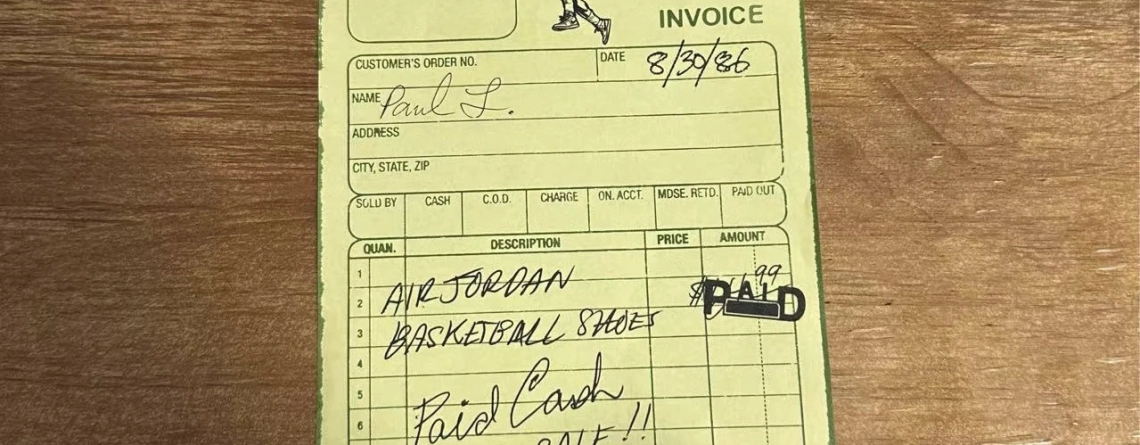 INVOICE
CUSTOMER'S ORDER NO. DATE 8/30/86
NAME Paul L.
ADDRESS
CITY, STATE, ZIP
SOLD BY CASH C.O.D. CHARGE ON. ACCT. MDSE. RETD. PAID OUT
QUAN. DESCRIPTION PRICE AMOUNT
1
2 AIR JORDAN $ 99
PAID
3 BASKETBALL SHOES
4
5
6 Paid Cash